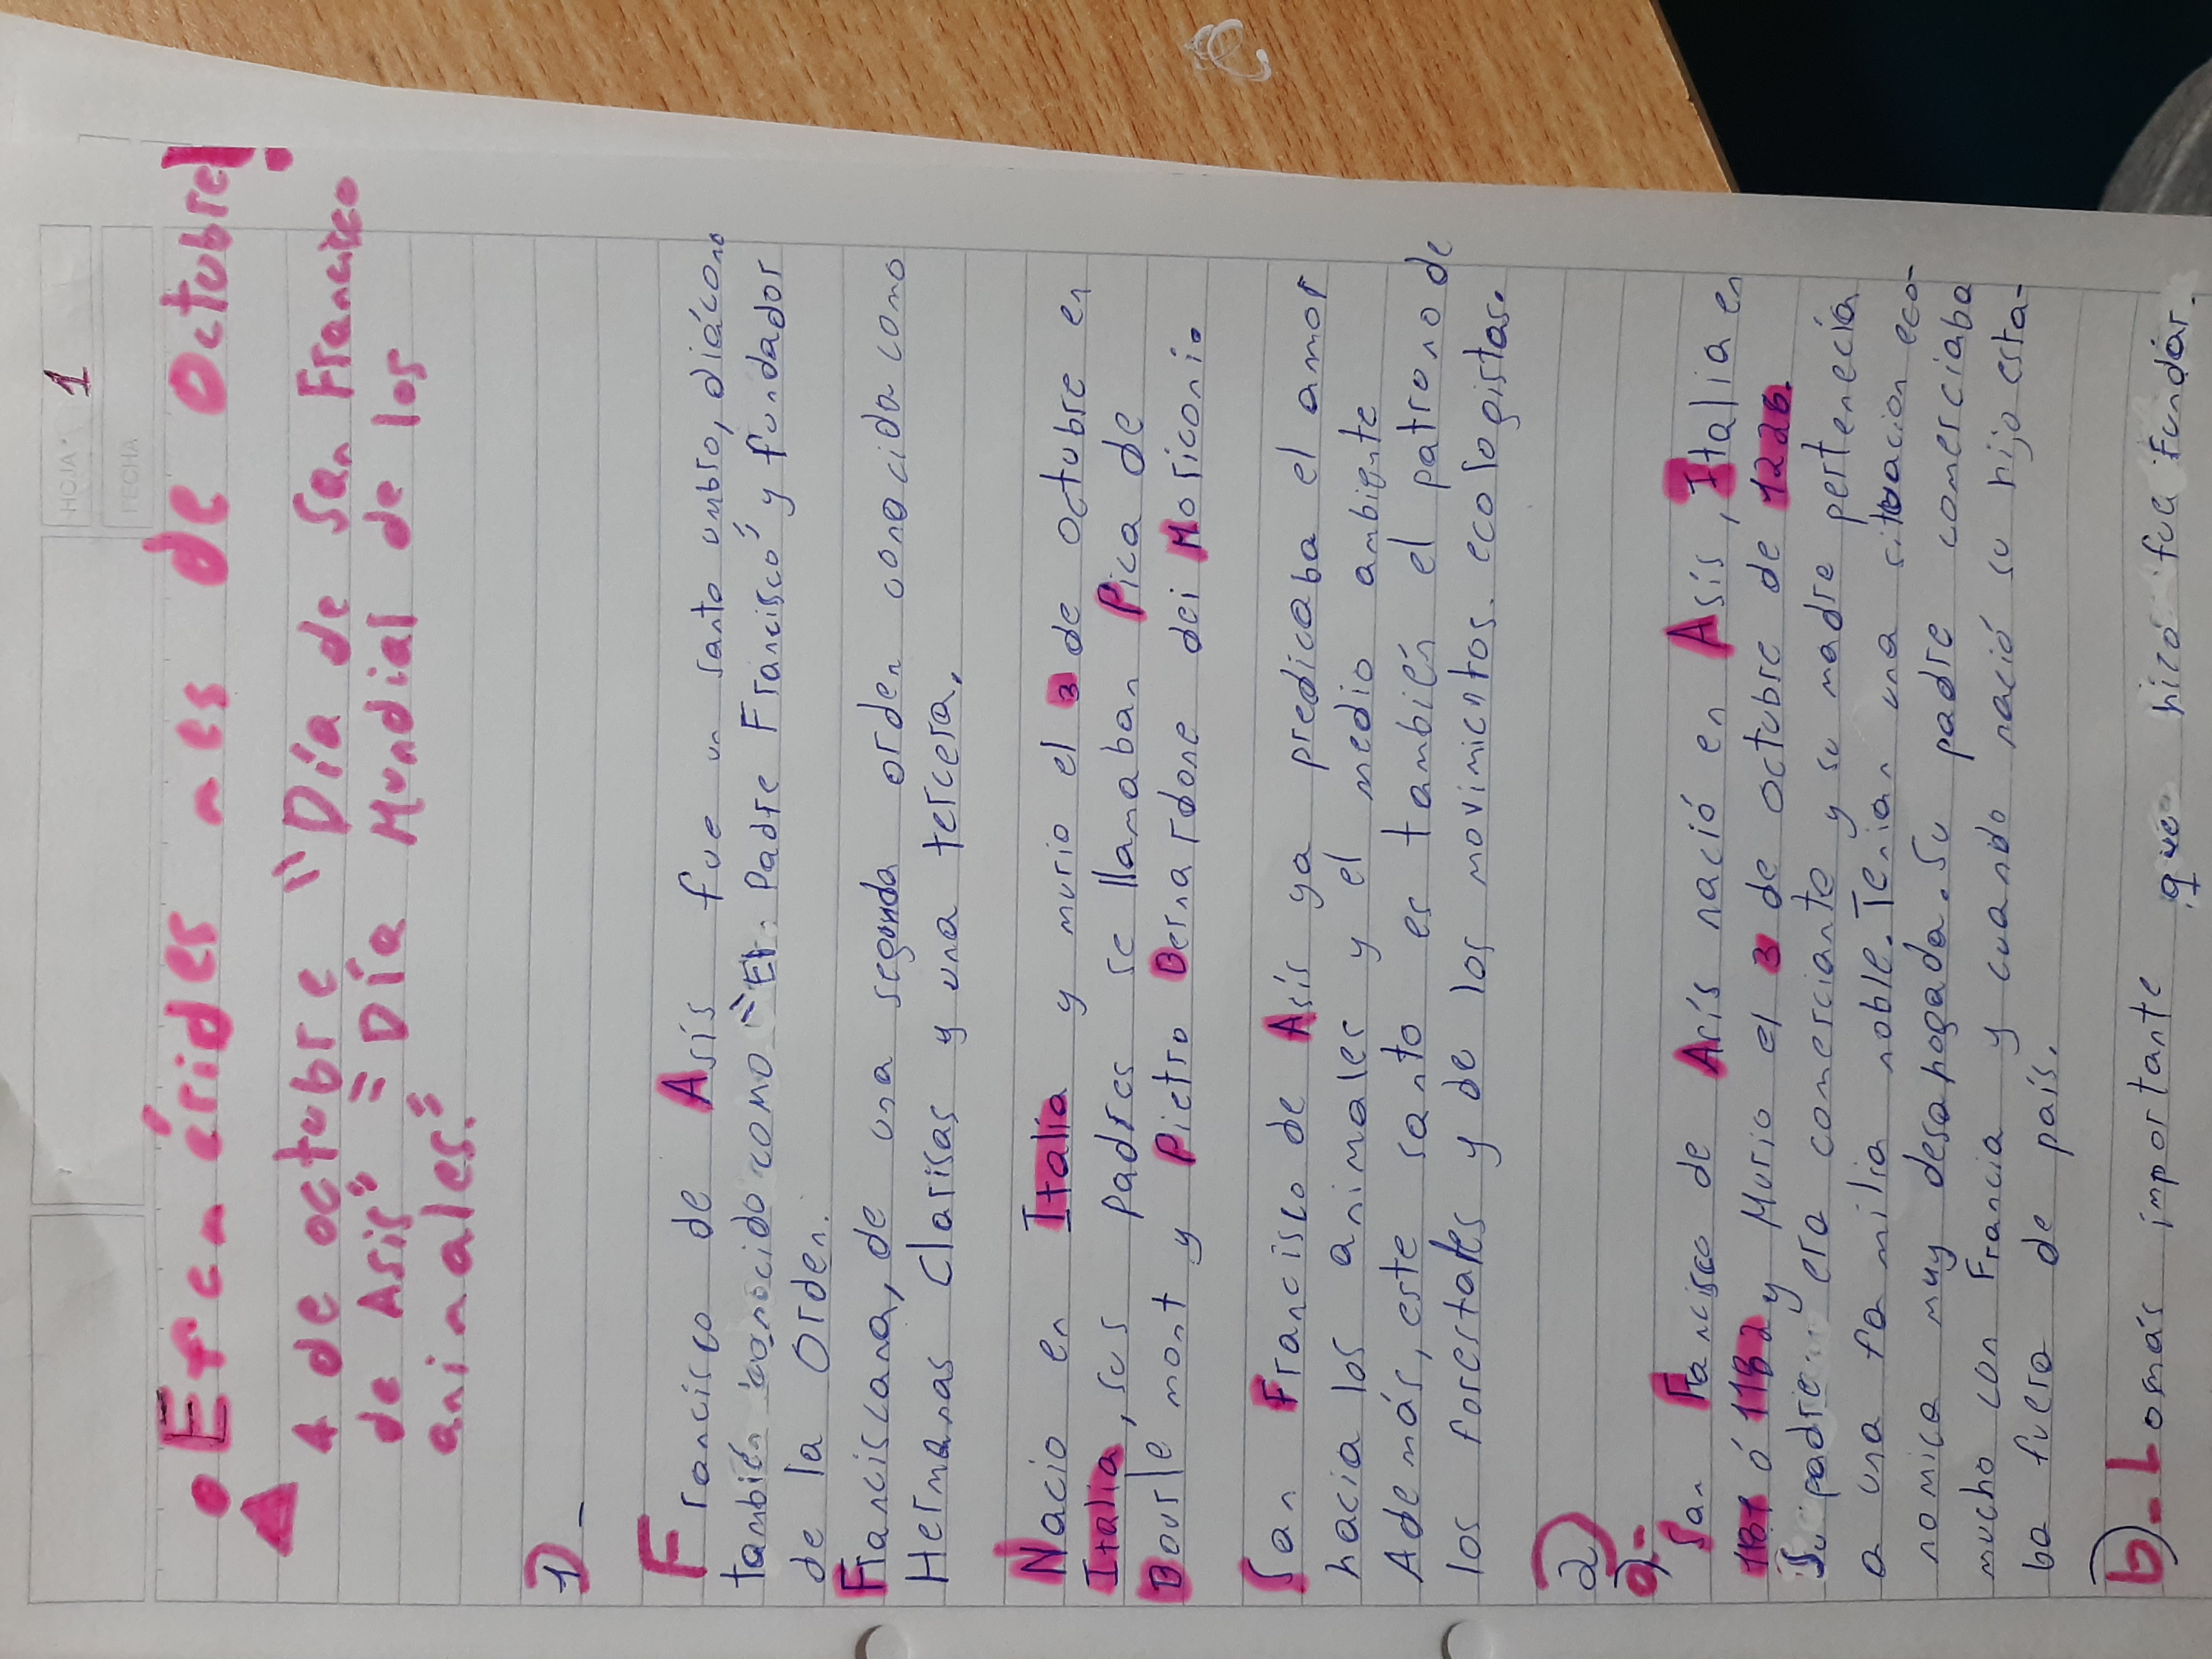 HOJA 1
FECHA
• Efemérides mes de Octubre!
4 de octubre "Día de San Francisco
de Asís" "Día Mundial de los
animales."
1) -
Francisco de Asís fue un santo umbro, diácono
también conocido como "El Padre Francisco" y fundador
de la Orden.
Franciscana, de una segunda orden conocida como
Hermanas Clarisas y una tercera.
Nacio en Italia y murio el 3 de octubre en
Italia, sus padres se llamaban Pica de
Bourlemont y Pietro Bernardone dei Moriconi.
San Francisco de Asís ya predicaba el amor
hacia los animales y el medio ambiente
Además, este santo es también el patrono de
los forestales y de los movimientos ecologistas.
2)
a-
San Francisco de Asís nació en Asís, Italia en
1181 ó 1182 y Murio el 3 de octubre de 1226.
Su padre era comerciante y su madre pertenecía
a una familia noble. Tenian una situacion eco-
nomica muy desahogada. Su padre comerciaba
mucho con Francia y cuando nació su hijo esta-
ba fuera de país.
b)- Lo más importante que hizo fue Fundar